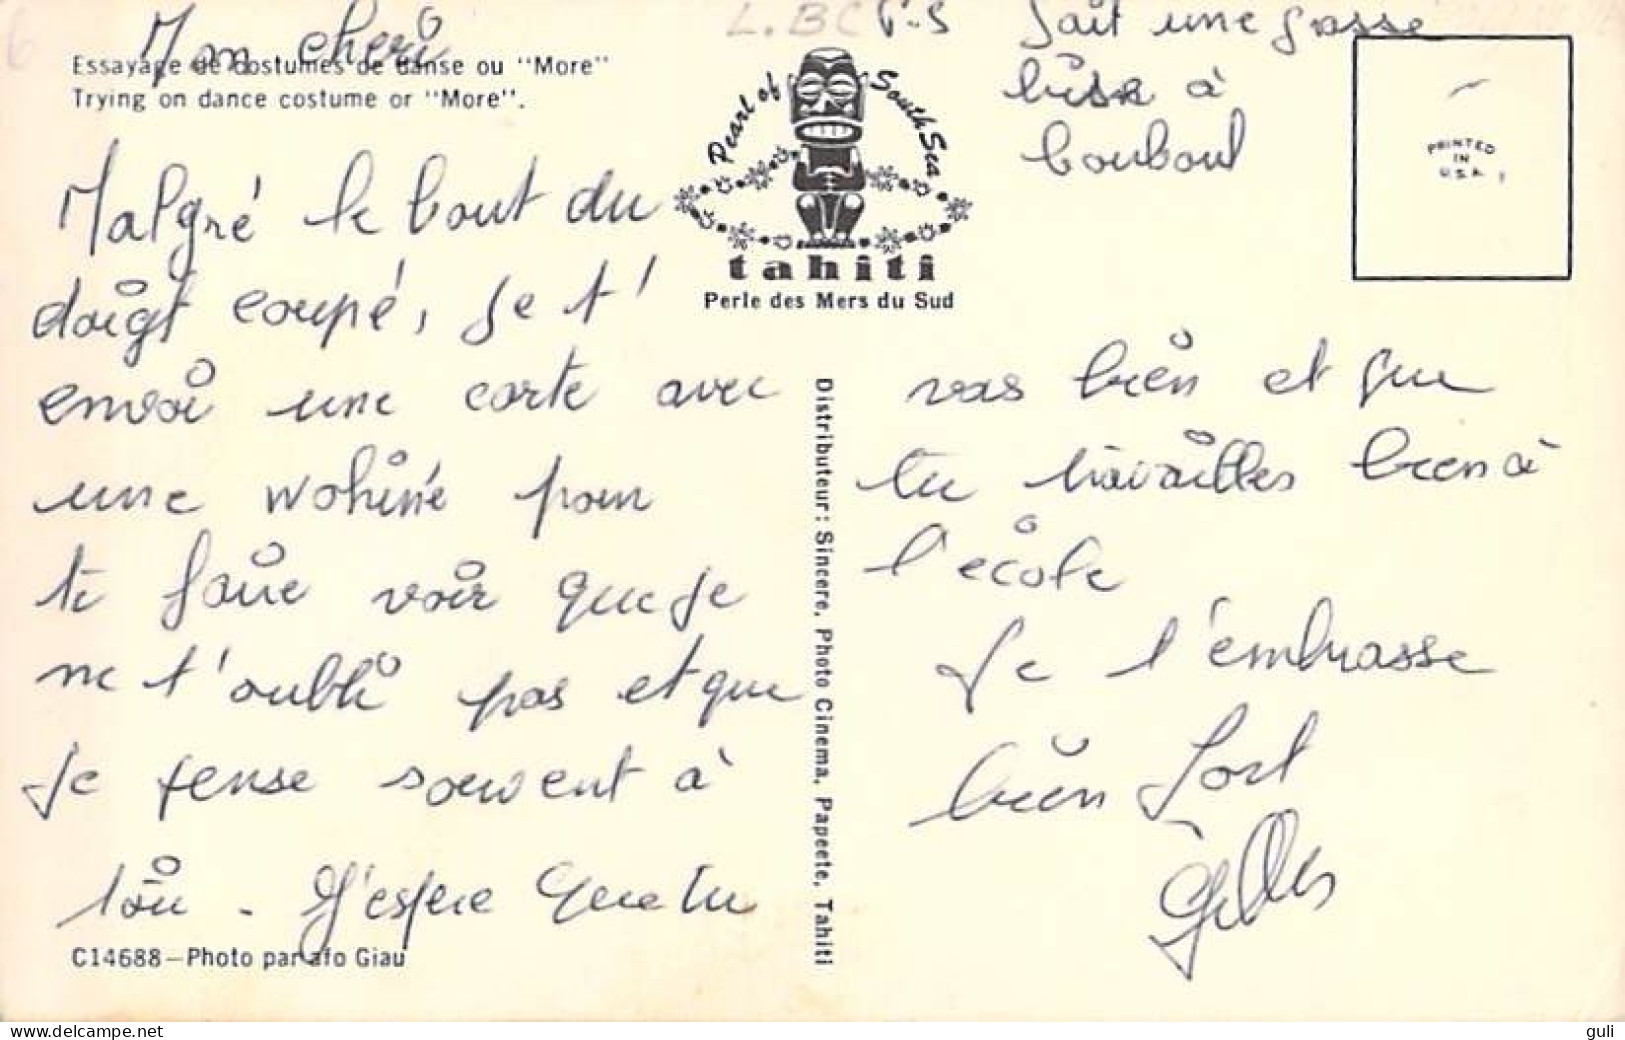 Mon cheri
Essayage de costumes de danse ou "More"
Trying on dance costume or "More".
Malgré le bout du
doigt coupé, je t'
envoi une carte avec
une wohine pour
te faire voir que je
ne t'oubli pas et que
je pense souvent à
toi - J'espere que tu
C14688—Photo par afo Giau
L.BC
Pearl of South Sea
tahiti
Perle des Mers du Sud
Distributeur: Sincere, Photo Cinema, Papeete, Tahiti
P.S fait une grosse
bise à
bouboul
PRINTED
IN
U.S.A.
vas bien et que
tu travailles bien à
l'ecole
Je t'embrasse
bien fort
Gilles
www.delcampe.net
guli